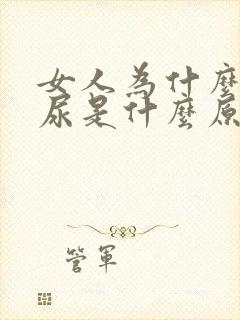 女人為什麼
尿是什麼原
管軍